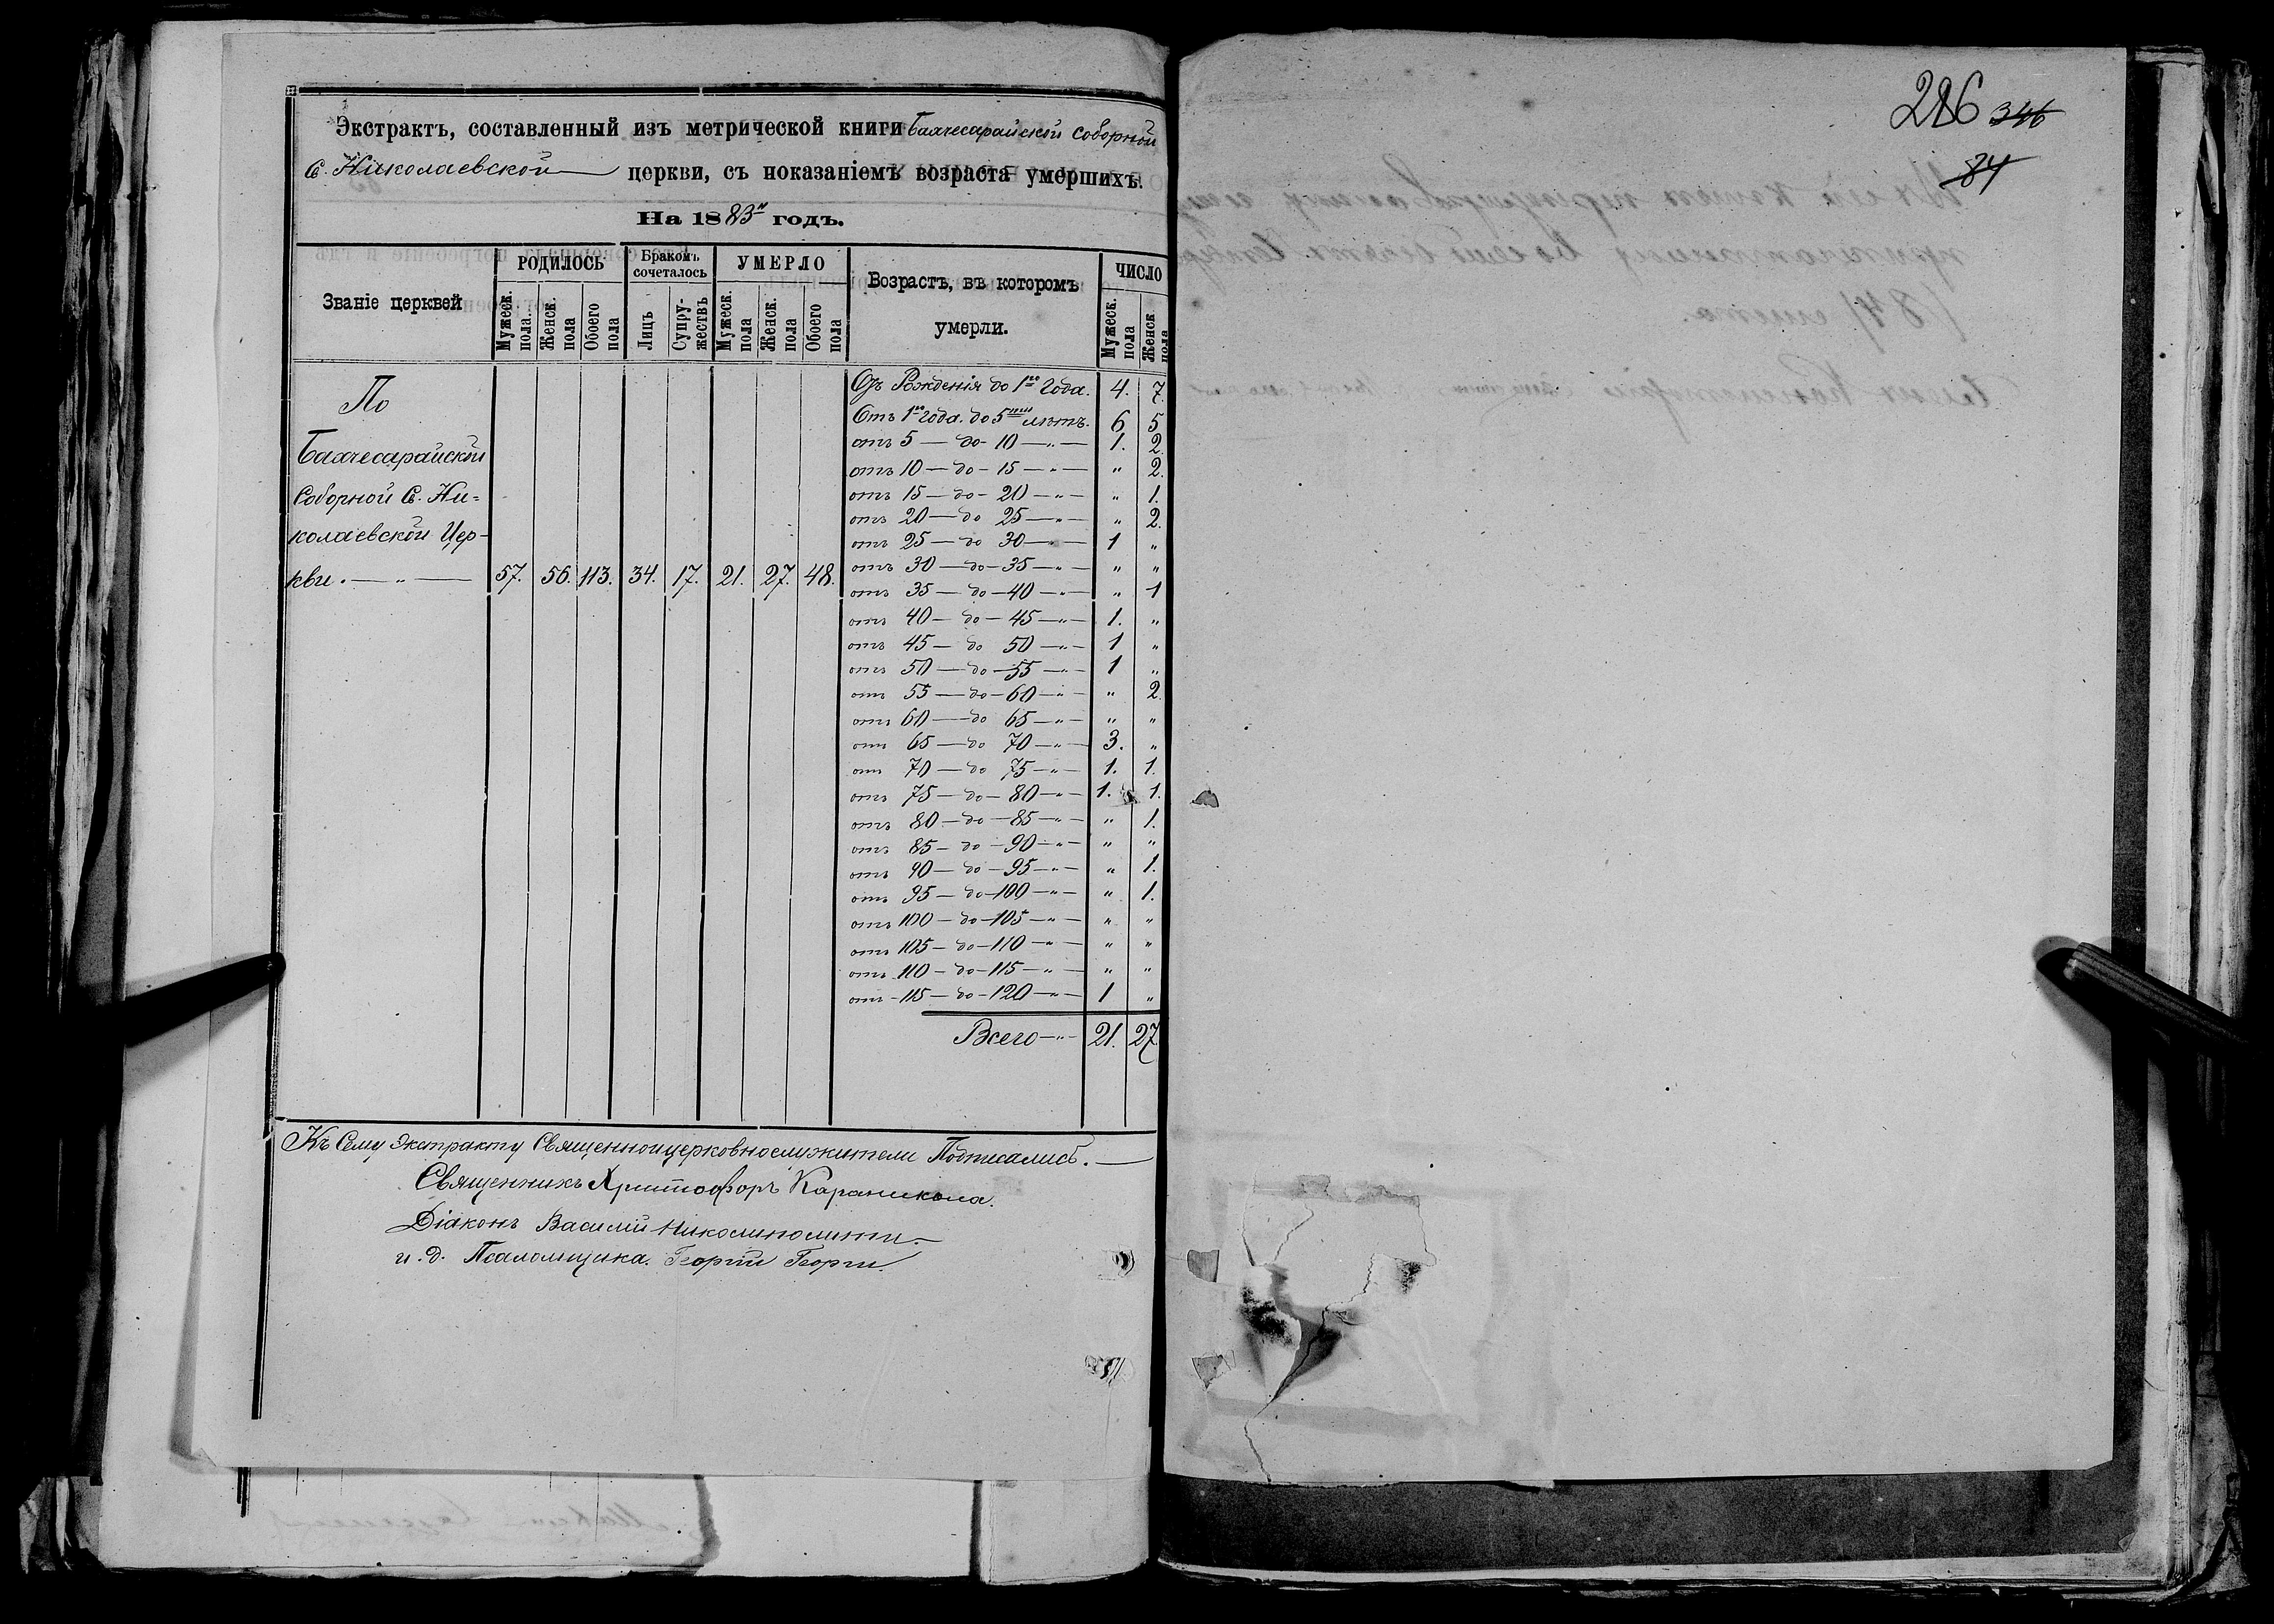 Экстрактъ, составленный изъ метрической книги Бахчесарайской Соборной
С. Николаевской церкви, съ показаніемъ возраста умершихъ.
На 1883й годъ.
Званіе церквей
РОДИЛОСЬ
Бракомъ сочеталось
УМЕРЛО
Возрастъ, въ которомъ умерли.
ЧИСЛО
Мужеск. пола.
Женск. пола
Обоего пола
Лицъ
Супружествъ
Мужеск. пола
Женск. пола
Обоего пола
Мужеск. пола
Женск пола
По
Бахчесарайской
Соборной С. Ни=
колаевской Цер-
кви. — „ — 57. 56. 113. 34. 17. 21. 27. 48.
Отъ Рожденія до 1го Года. 4. 7.
Отъ 1го года. до 5ти лѣтъ. 6 5
отъ 5 — до - 10 — „ — 1. 2.
отъ 10 — до - 15 — „ — „ 2.
отъ 15 — до - 20 — „ — „ 1.
отъ 20 — до 25 — „ — „ 2.
отъ 25 — до 30 — „ — 1 „
отъ 30 — до - 35 — „ — „ „
отъ 35 — до - 40 — „ — „ 1
отъ 40 — до - 45 — „ — 1. „
отъ 45 — до 50 — „ — 1 „
отъ 50 — до - 55 — „ — 1 „
отъ 55 — до - 60 — „ — „ 2.
отъ 60 — до 65 — „ — „ „
отъ 65 — до 70 — „ — 3. „
отъ 70 — до 75 — „ — 1. 1.
отъ 75 — до - 80 — „ — 1. 1.
отъ 80 — до - 85 — „ — „ 1.
отъ 85 — до - 90 — „ — „ „
отъ 90 — до - 95 — „ — „ 1.
отъ 95 — до - 100 — „ — „ 1.
отъ 100 — до - 105 — „ — „ „
отъ 105 — до - 110 — „ — „ „
отъ 110 — до - 115 — „ — „ „
отъ - 115 — до - 120 — „ — 1 „
Всего — „ - 21. 27.
Къ Сему Экстракту Священноицерковнослужители Подписались. —
Священникъ Христофоръ Караникола.
Діаконъ Василій
и. д. Псаломщика. Георгій Георги.
286 346
84